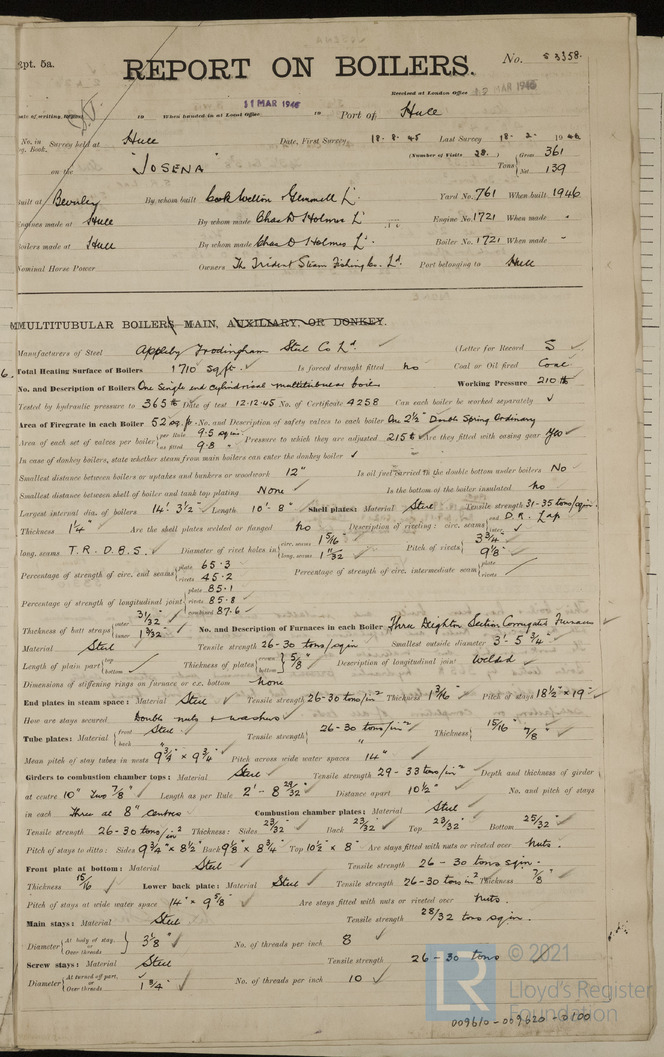 Rpt. 5a.
REPORT ON BOILERS.
No. 53358.
Received at London Office 12 MAR 1946
Date of writing Report 19 When handed in at Local Office 11 MAR 1946 19 Port of Hull
No. in Reg. Book. Survey held at Hull Date, First Survey 18.8.45 Last Survey 18.2.1946
on the "JOSENA" (Number of Visits 28.) Tons Gross 361 Net 139
Built at Beverley By whom built Cook Welton Gemmell Ld. Yard No. 761 When built 1946
Engines made at Hull By whom made Chas D Holmes Ld. Engine No. 1721 When made "
Boilers made at Hull By whom made Chas D Holmes Ld. Boiler No. 1721 When made "
Nominal Horse Power Owners The Trident Steam Fishing Co. Ld. Port belonging to Hull
MULTITUBULAR BOILERS MAIN, AUXILIARY, OR DONKEY.
Manufacturers of Steel Appleby Frodingham Steel Co Ld. (Letter for Record S
Total Heating Surface of Boilers 1710 sq ft. Is forced draught fitted No Coal or Oil fired Coal
No. and Description of Boilers One single end cylindrical multitubular boiler Working Pressure 210 lb
Tested by hydraulic pressure to 365 lb Date of test 12.12.45 No. of Certificate 4258 Can each boiler be worked separately ✓
Area of Firegrate in each Boiler 52 sq. ft. No. and Description of safety valves to each boiler One 2½" Double Spring Ordinary
Area of each set of valves per boiler per Rule 9.5 sq in as fitted 9.8 Pressure to which they are adjusted 215 lb Are they fitted with easing gear Yes
In case of donkey boilers, state whether steam from main boilers can enter the donkey boiler ✓
Smallest distance between boilers or uptakes and bunkers or woodwork 12" Is oil fuel carried in the double bottom under boilers No
Smallest distance between shell of boiler and tank top plating None Is the bottom of the boiler insulated No
Largest internal dia. of boilers 14' 3½" Length 10'-8" Shell plates: Material Steel Tensile strength 31-35 tons/sq in.
Thickness 1¼" Are the shell plates welded or flanged No Description of riveting: circ. seams end D.R. Lap inter. ✓
long. seams T.R.D.B.S. Diameter of rivet holes in circ. seams 1 5/16" long. seams 1 11/32" Pitch of rivets 3¾" 9⅛"
Percentage of strength of circ. end seams plate 65.3 rivets 45.2 Percentage of strength of circ. intermediate seam plate rivets
Percentage of strength of longitudinal joint plate 85.1 rivets 85.8 combined 87.6
Thickness of butt straps outer 31/32" inner 1 3/32" No. and Description of Furnaces in each Boiler Three Deighton Section Corrugated Furnaces
Material Steel Tensile strength 26-30 tons/sq in Smallest outside diameter 3'-5¾"
Length of plain part top bottom Thickness of plates crown bottom 5/8" Description of longitudinal joint Welded
Dimensions of stiffening rings on furnace or c.c. bottom None
End plates in steam space: Material Steel Tensile strength 26-30 tons/in² Thickness 1 3/16" Pitch of stays 18½" × 19"
How are stays secured Double nuts & washers
Tube plates: Material front back Steel Tensile strength 26-30 tons/in² Thickness 15/16" 7/8"
Mean pitch of stay tubes in nests 9¾" × 9¾" Pitch across wide water spaces 14"
Girders to combustion chamber tops: Material Steel Tensile strength 29-33 tons/in² Depth and thickness of girder
at centre 10" Two 7/8" Length as per Rule 2'-8 29/32" Distance apart 10½" No. and pitch of stays
in each Three at 8" centres Combustion chamber plates: Material Steel
Tensile strength 26-30 tons/in² Thickness: Sides 23/32" Back 23/32" Top 23/32" Bottom 25/32"
Pitch of stays to ditto: Sides 9¾" × 8½" Back 9⅛" × 8¾" Top 10½" × 8" Are stays fitted with nuts or riveted over Nuts.
Front plate at bottom: Material Steel Tensile strength 26-30 tons sq in.
Thickness 15/16" Lower back plate: Material Steel Tensile strength 26-30 tons in² Thickness 7/8"
Pitch of stays at wide water space 14" × 9⅝" Are stays fitted with nuts or riveted over Nuts.
Main stays: Material Steel Tensile strength 28/32 tons sq in.
Diameter At body of stay, or Over threads 3⅛" No. of threads per inch 8
Screw stays: Material Steel Tensile strength 26-30 tons
Diameter At turned off part, or Over threads 1¾" No. of threads per inch 10
© 2021
LR
Lloyd's Register
Foundation
009610-009620-0100